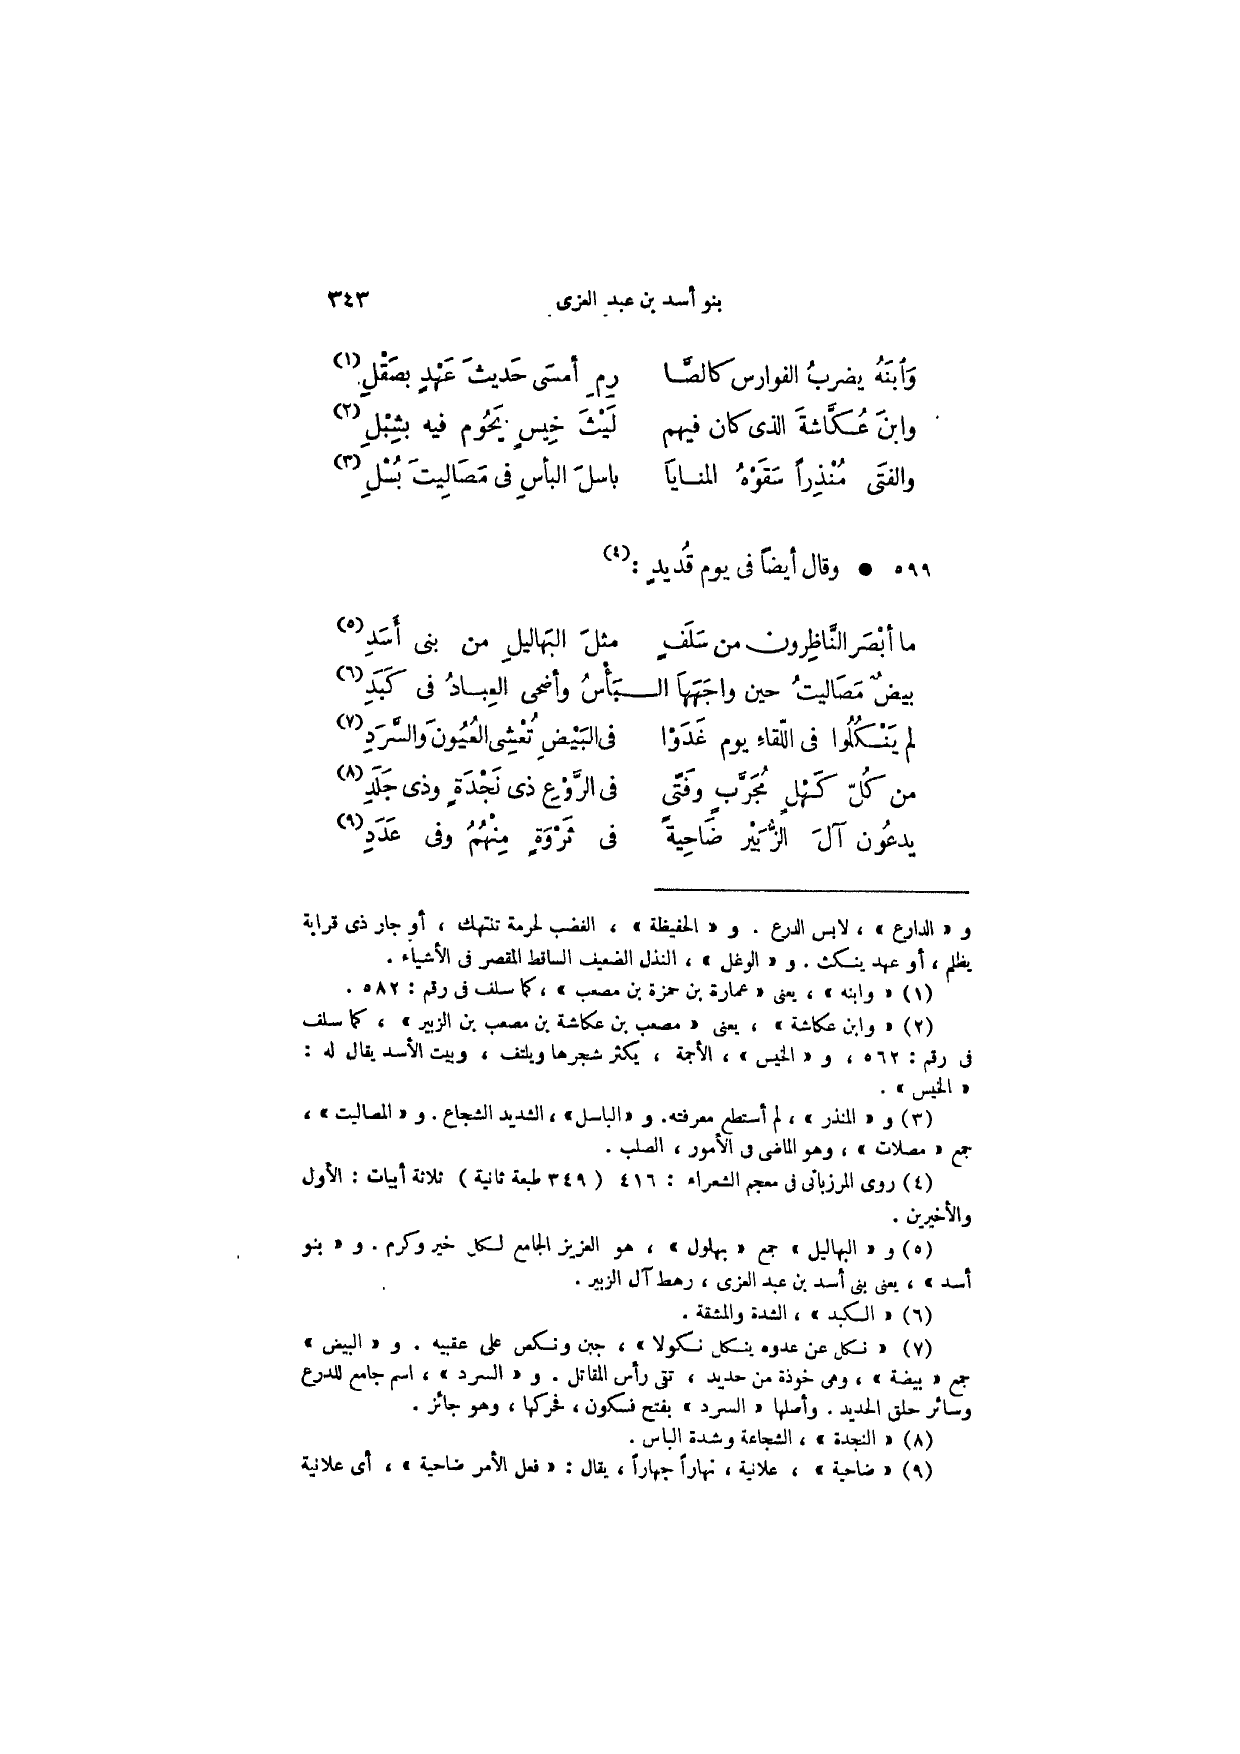 بنو أسد بن عبد العزى ٣٤٣
وَٱبنَهُ يضربُ الفوارس كالصَّا رِمِ أمسَى حَديثَ عَهْدٍ بصَقْلِ (١)
وابنَ عُكَّاشةَ الذى كان فيهم لَيْثَ خِيسٍ يَحُوم فيه بشِبْلِ (٢)
والفتَى مُنْذِراً سَقَوْهُ المنايَا باسلَ البأسِ فى مَصَالِيتَ بُسْلِ (٣)
٥٩٩ ● وقال أيضاً فى يوم قُديدٍ : (٤)
ما أبْصَر النَّاظِرون من سَلَفٍ مثلَ البَهاليلِ من بنى أَسَدِ (٥)
بيضٌ مَصَاليتُ حين واجَهَهَا الـبَأْسُ وأضحى العِبادُ فى كَبَدِ (٦)
لم يَنْكُلُوا فى اللّقاء يوم غَدَوْا فى البَيْضِ تُعْشِى العُيُونَ والسَّرَدِ (٧)
من كُلّ كَهْلٍ مُجَرَّبٍ وفَتًى فى الرَّوْعِ ذى نَجْدَةٍ وذى جَلَدِ (٨)
يدعُون آلَ الزُّبَيْر ضَاحِيةً فى ثَرْوَةٍ مِنْهُمُ وفى عَدَدِ (٩)
و « الدارع » ، لابس الدرع . و « الحفيظة » ، الغضب لحرمة تنتهك ، أو جار ذى قرابة
يظلم ، أو عهد ينكث . و « الوغل » ، النذل الضعيف الساقط المقصر فى الأشياء .
(١) « وابنه » ، يعنى « عمارة بن حمزة بن مصعب » ، كما سلف فى رقم : ٥٨٢ .
(٢) « وابن عكاشة » ، يعنى « مصعب بن عكاشة بن مصعب بن الزبير » ، كما سلف
فى رقم : ٥٦٢ ، و « الخيس » ، الأجمة ، يكثر شجرها ويلتف ، وبيت الأسد يقال له :
« الخيس » .
(٣) و « المنذر » ، لم أستطع معرفته. و «الباسل» ، الشديد الشجاع . و « المصاليت » ،
جمع « مصلات » ، وهو الماضى فى الأمور ، الصلب .
(٤) روى المرزبانى فى معجم الشعراء : ٤١٦ ( ٣٤٩ طبعة ثانية ) ثلاثة أبيات : الأول
والأخيرين .
(٥) و « البهاليل » جمع « بهلول » ، هو العزيز الجامع لكل خير وكرم . و « بنو
أسد » ، يعنى بنى أسد بن عبد العزى ، رهط آل الزبير .
(٦) « الكبد » ، الشدة والمشقة .
(٧) « نكل عن عدوه ينكل نكولا » ، جبن ونكص على عقبيه . و « البيض »
جمع « بيضة » ، وهى خوذة من حديد ، تقى رأس المقاتل . و « السرد » ، اسم جامع للدرع
وسائر حلق الحديد . وأصلها « السرد » بفتح فسكون ، فحركها ، وهو جائز .
(٨) « النجدة » ، الشجاعة وشدة الباس .
(٩) « ضاحية » ، علانية ، نهاراً جهاراً ، يقال : « فعل الأمر ضاحية » ، أى علانية